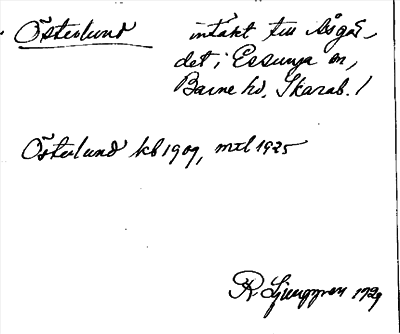 Österlund intäkt till Åsgår-
det i Essunga sn,
Barne hd, Skarab. l
Österlund kb 1909, mtl 1925
R Ljunggren 1929